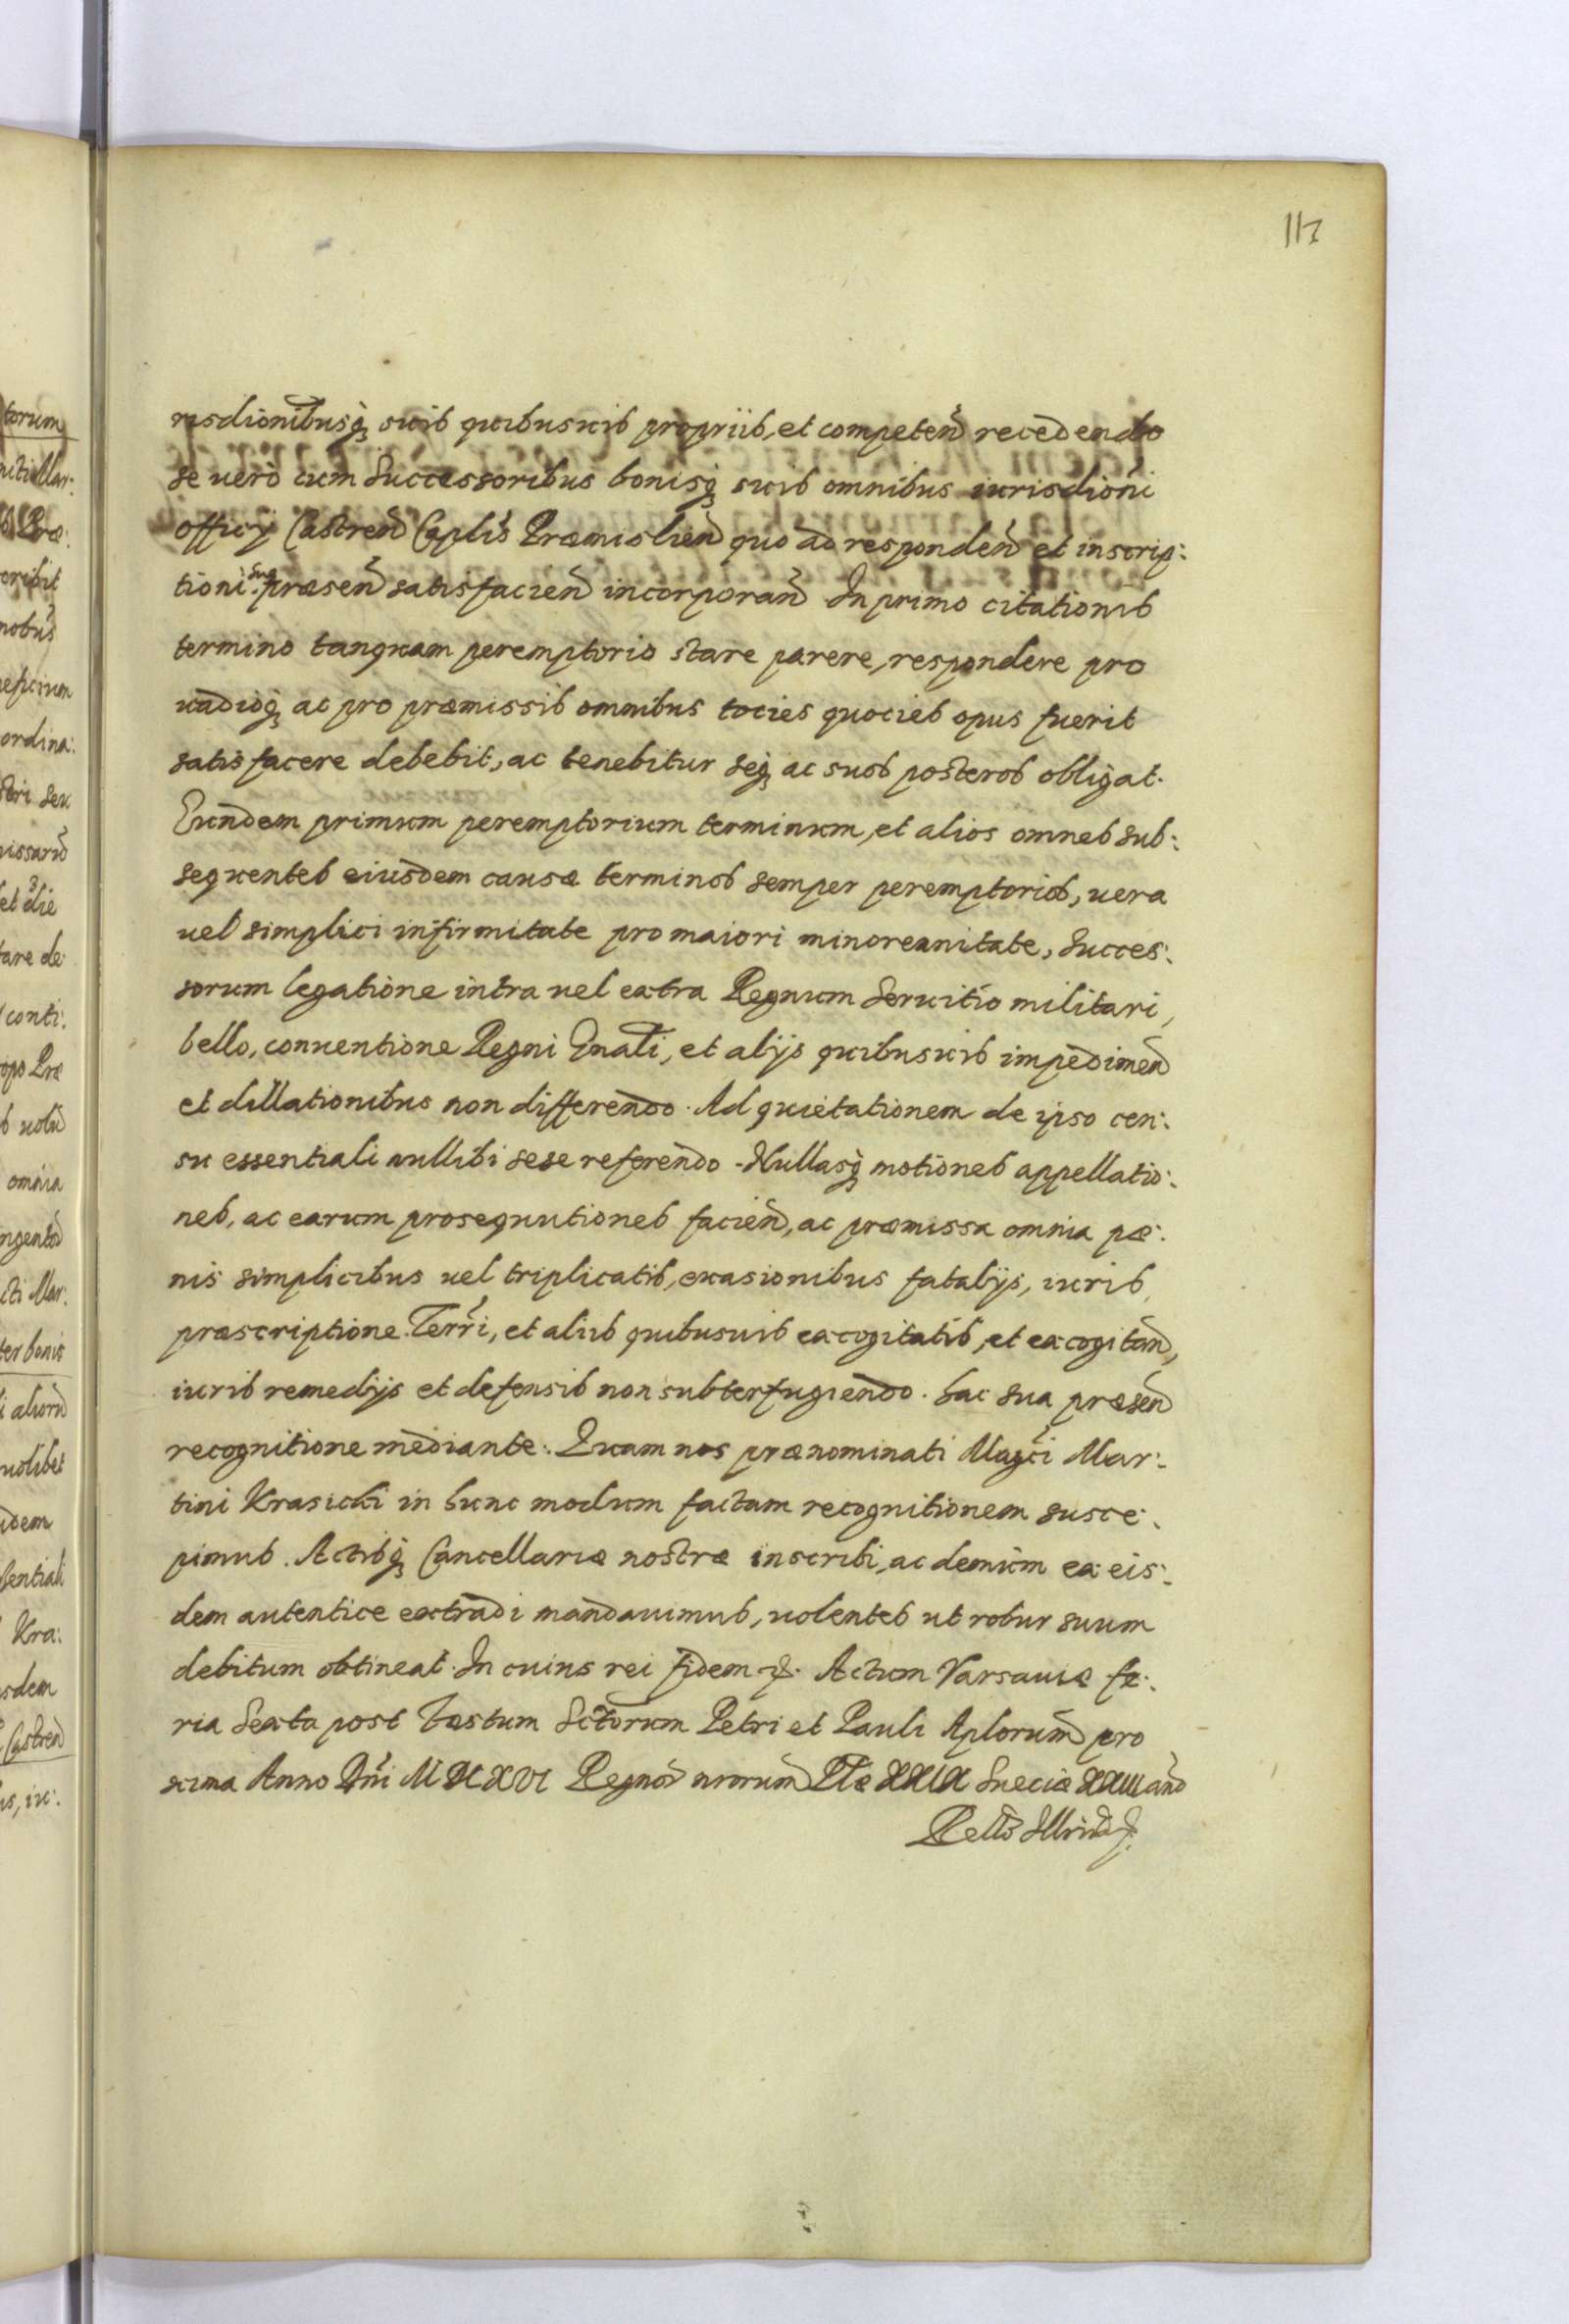 117
risdionibusq; suis quibusuis propriis, et competen̄ recedendo
se uerò cum Successoribus bonisq; suis omnibus iurisdioni
officij Castren̄ Caplis Præmislien̄ quo ad responden̄ et inscrip:
tioni suæ præsen̄ satisfacien̄ incorporan̄ In primo citationis
termino tanquam peremptorio stare parere, respondere pro
uadioq; ac pro præmissis omnibus tocies quocies opus fuerit
satisfacere debebit, ac tenebitur seq; ac suos posteros obligat.
Eundem primum peremptorium terminum, et alios omnes sub:
sequentes eiusdem causæ terminos semper peremptorios, uera
uel simplici infirmitate pro maiori minoreanitate, Succes:
sorum legatione intra uel extra Regnum Seruitio militari,
bello, conuentione Regni Gnali, et alijs quibusuis impedimen̄
et dillationibus non differendo. Ad quietationem de ipso cen:
su essentiali nullibi sese referendo. Nullasq; motiones appellatio:
nes, ac earum prosequutiones facien̄, ac præmissa omnia pæ:
nis simplicibus uel triplicatis, euasionibus fatalijs, iuris,
præscriptione Terri, et aliis quibusuis excogitatis, et excogitan̄,
iuris remedijs et defensis non subterfugiendo. hac sua præsen̄
recognitione mediante. Quam nos prænominati Magci Mar:
tini Krasicki in hunc modum factam recognitionem susce:
pimus. Actisq; Cancellariæ nostræ inscribi, ac demùm ex eis:
dem autentice extradi mandauimus, uolentes ut robur suum
debitum obtineat. In cuius rei fidem etc. Actum Varsauiæ fe:
ria Sexta post Festum Sctorum Petri et Pauli Aplorum pro
xima Anno Dni MDCXVI Regnor̄ nrorum Plæ XXIX Sueciæ XXIII an̄o